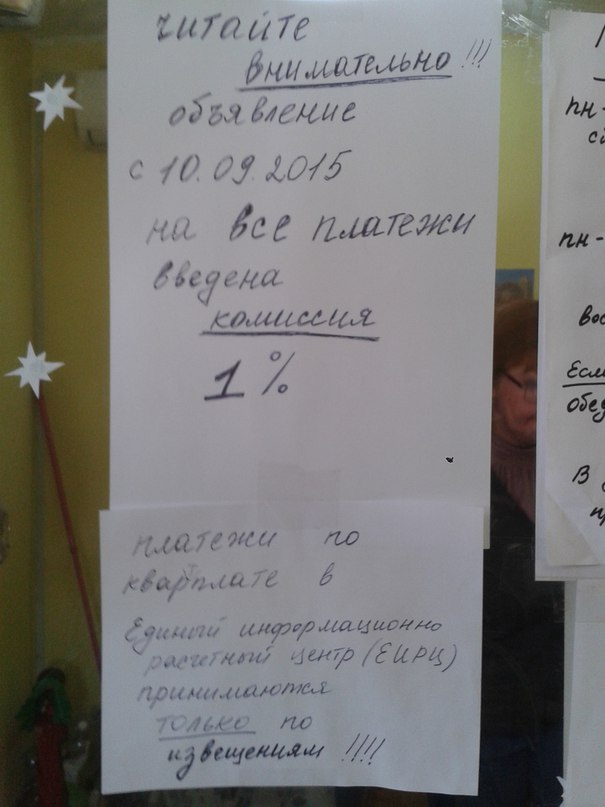 читайте
внимательно!!!
объявление
с 10.09.2015
на все платежи
введена
комиссия
1%
платежи по
квартплате в
Единый информационно
расчетный центр (ЕИРЦ)
принимаются
только по
извещениям !!!!
пн-
пн-
Если
В